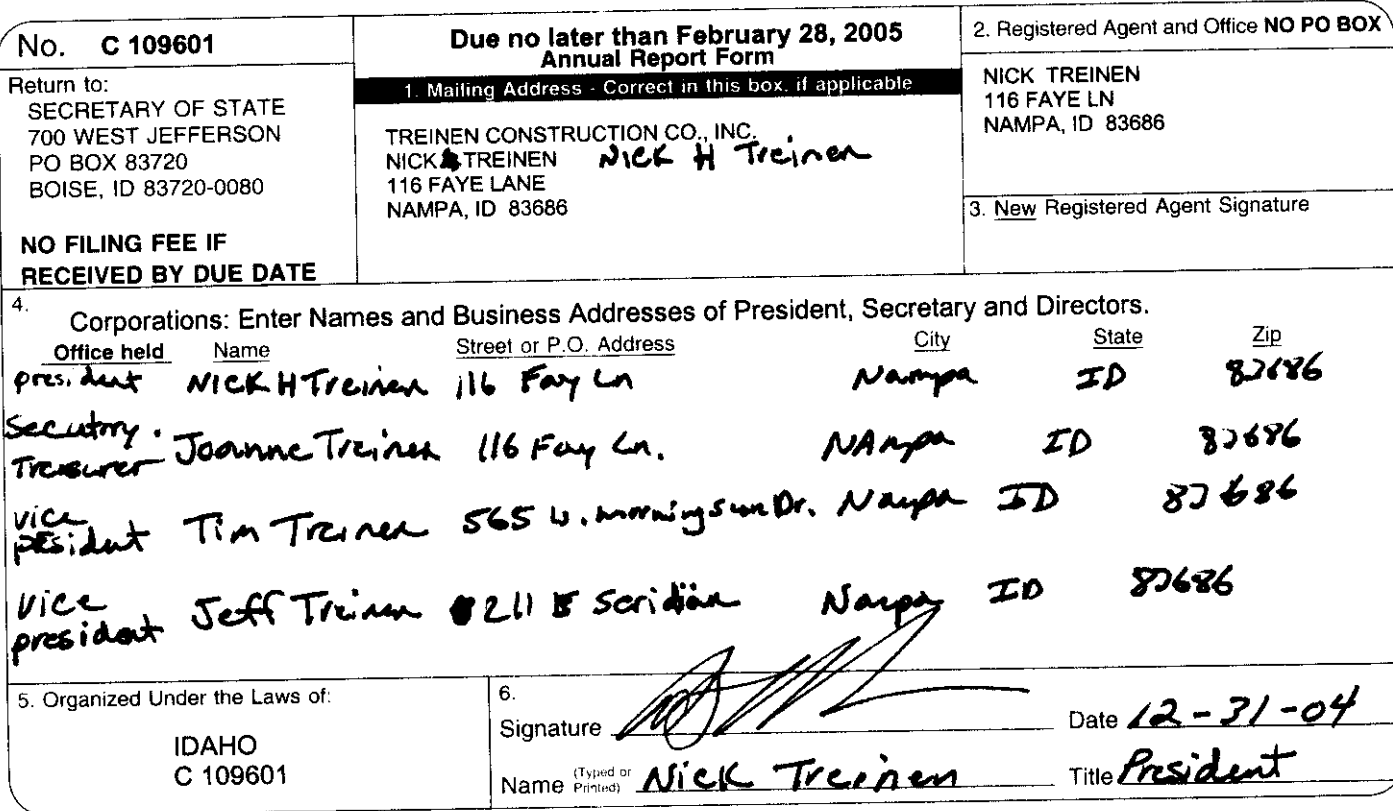 No. C 109601
Return to:
SECRETARY OF STATE
700 WEST JEFFERSON
PO BOX 83720
BOISE, ID 83720-0080
NO FILING FEE IF
RECEIVED BY DUE DATE
Due no later than February 28, 2005
Annual Report Form
1. Mailing Address - Correct in this box, if applicable
TREINEN CONSTRUCTION CO., INC.
NICK TREINEN Nick H Treinen
116 FAYE LANE
NAMPA, ID 83686
2. Registered Agent and Office NO PO BOX
NICK TREINEN
116 FAYE LN
NAMPA, ID 83686
3. New Registered Agent Signature
4.
Corporations: Enter Names and Business Addresses of President, Secretary and Directors.
Office held Name Street or P.O. Address City State Zip
president Nick H Treinen 116 Fay Ln Nampa ID 83686
Secutry.
Treasurer Joanne Treinen 116 Fay Ln. NAmpa ID 83686
vice
president Tim Treinen 565 W. morningsun Dr. Nampa ID 83686
vice
president Jeff Treinen 211 Nampa ID 83686
5. Organized Under the Laws of:
IDAHO
C 109601
6.
Signature
Date 12-31-04
Name (Typed or Printed) Nick Treinen Title President